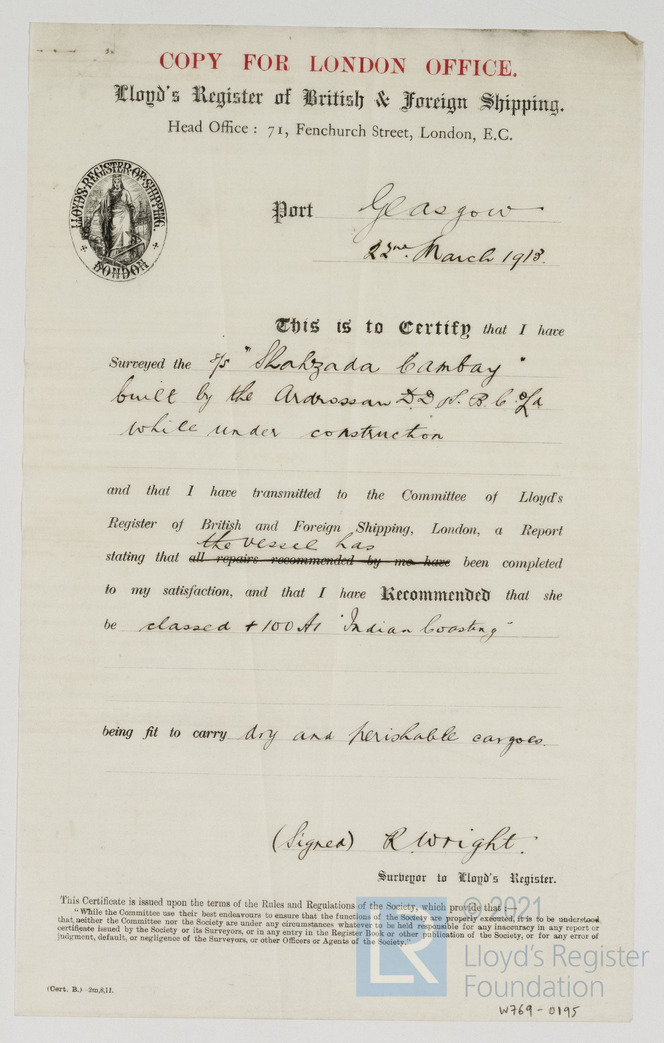 COPY FOR LONDON OFFICE.
Lloyd's Register of British & Foreign Shipping.
Head Office: 71, Fenchurch Street, London, E.C.
LLOYD'S REGISTER OF SHIPPING.
LONDON
Port Glasgow
22nd March 1913.
This is to Certify that I have
Surveyed the s/s "Shahzada Cambay"
built by the Ardrossan D.D & S. B. C. Ld
while under construction
and that I have transmitted to the Committee of Lloyd's
Register of British and Foreign Shipping, London, a Report
the vessel has
stating that all repairs recommended by me have been completed
to my satisfaction, and that I have Recommended that she
be classed + 100 A1 "Indian Coasting"
being fit to carry dry and perishable cargoes.
(Signed) R. Wright.
Surveyor to Lloyd's Register.
This Certificate is issued upon the terms of the Rules and Regulations of the Society, which provide that :—
"While the Committee use their best endeavours to ensure that the functions of the Society are properly executed, it is to be understood
that neither the Committee nor the Society are under any circumstances whatever to be held responsible for any inaccuracy in any report or
certificate issued by the Society or its Surveyors, or in any entry in the Register Book or other publication of the Society, or for any error of
judgment, default, or negligence of the Surveyors, or other Officers or Agents of the Society."
© 2021
LR
Lloyd's Register
Foundation
(Cert. B.) 2m,8,11.
W769-0195